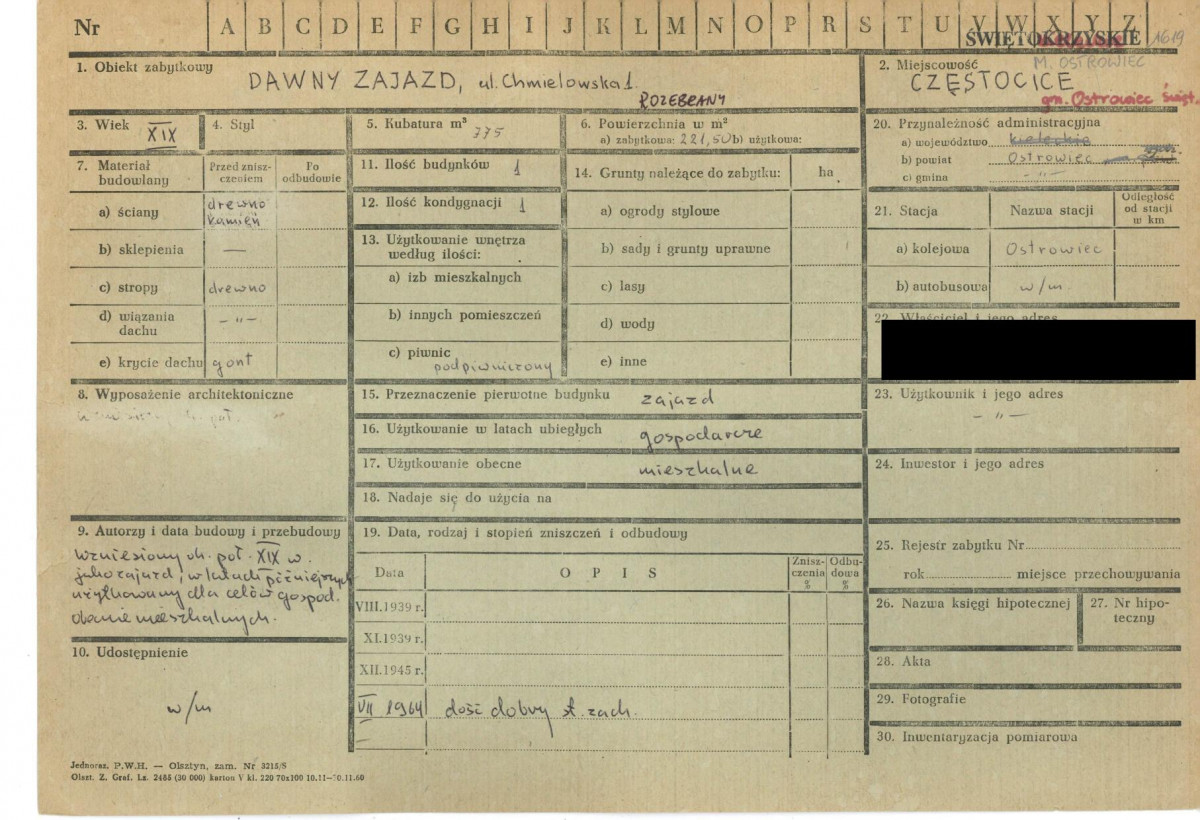 Nr A B C D E F G H I J K L M N O P R S T U V W X Y Z
ŚWIĘTOKRZYSKIE 1619
1. Obiekt zabytkowy
DAWNY ZAJAZD, ul. Chmielowska 1.
ROZEBRANY
2. Miejscowość
M. OSTROWIEC
CZĘSTOCICE
gm. Ostrowiec Święt.
3. Wiek XIX
4. Styl
5. Kubatura m³ 775
6. Powierzchnia w m²
a) zabytkowa: 221,50 b) użytkowa:
7. Materiał budowlany
Przed zniszczeniem
Po odbudowie
a) ściany drewno kamień
b) sklepienia —
c) stropy drewno
d) wiązania dachu – „ –
e) krycie dachu gont
8. Wyposażenie architektoniczne
9. Autorzy i data budowy i przebudowy
Wzniesiony ok. poł. XIX w.
jako zajazd, w latach późniejszych
użytkowany dla celów gospod.
obecnie mieszkalnych.
10. Udostępnienie
w/m
11. Ilość budynków 1
12. Ilość kondygnacji 1
13. Użytkowanie wnętrza według ilości:
a) izb mieszkalnych
b) innych pomieszczeń
c) piwnic
podpiwniczony
14. Grunty należące do zabytku: ha
a) ogrody stylowe
b) sady i grunty uprawne
c) lasy
d) wody
e) inne
15. Przeznaczenie pierwotne budynku zajazd
16. Użytkowanie w latach ubiegłych gospodarcze
17. Użytkowanie obecne mieszkalne
18. Nadaje się do użycia na
19. Data, rodzaj i stopień zniszczeń i odbudowy
Data
O P I S
Zniszczenia %
Odbudowa %
VIII.1939 r.
XI.1939 r.
XII.1945 r.
VII 1964 dość dobry st. zach.
20. Przynależność administracyjna
a) województwo kieleckie
b) powiat Ostrowiec
c) gmina – „ –
21. Stacja
Nazwa stacji
Odległość od stacji w km
a) kolejowa Ostrowiec
b) autobusowa w/m.
22. Właściciel i jego adres
23. Użytkownik i jego adres
– „ –
24. Inwestor i jego adres
25. Rejestr zabytku Nr
rok miejsce przechowywania
26. Nazwa księgi hipotecznej
27. Nr hipoteczny
28. Akta
29. Fotografie
30. Inwentaryzacja pomiarowa
Jednoraz. P.W.H. — Olsztyn, zam. Nr 3215/S
Olszt. Z. Graf. Lz. 2485 (30 000) karton V kl. 220 70x100 10.11—30.11.60